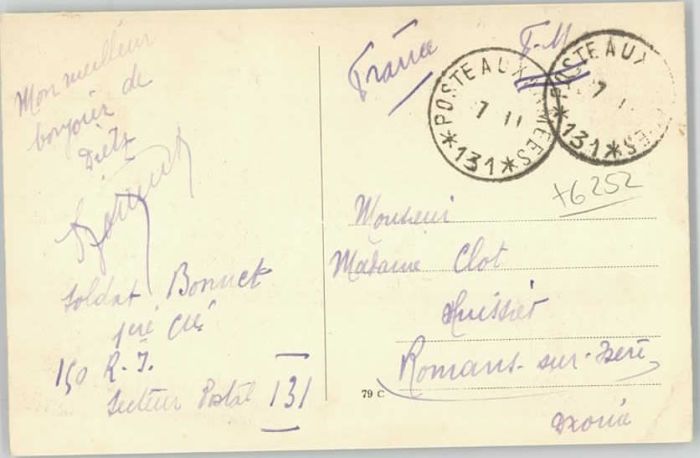 Mon meilleur
bonjour de
Dietz
Bonnet
Soldat Bonnet
1ère Cie
150 R.I.
Secteur Postal 131
France
F.M
*POSTE AUX ARMÉES*
7 11
*131*
*POSTE AUX ARMÉES*
7 11
*131*
+6252
Monsieur
Madame Clot
Huissier
Romans-sur-Isère
Drome
79 C